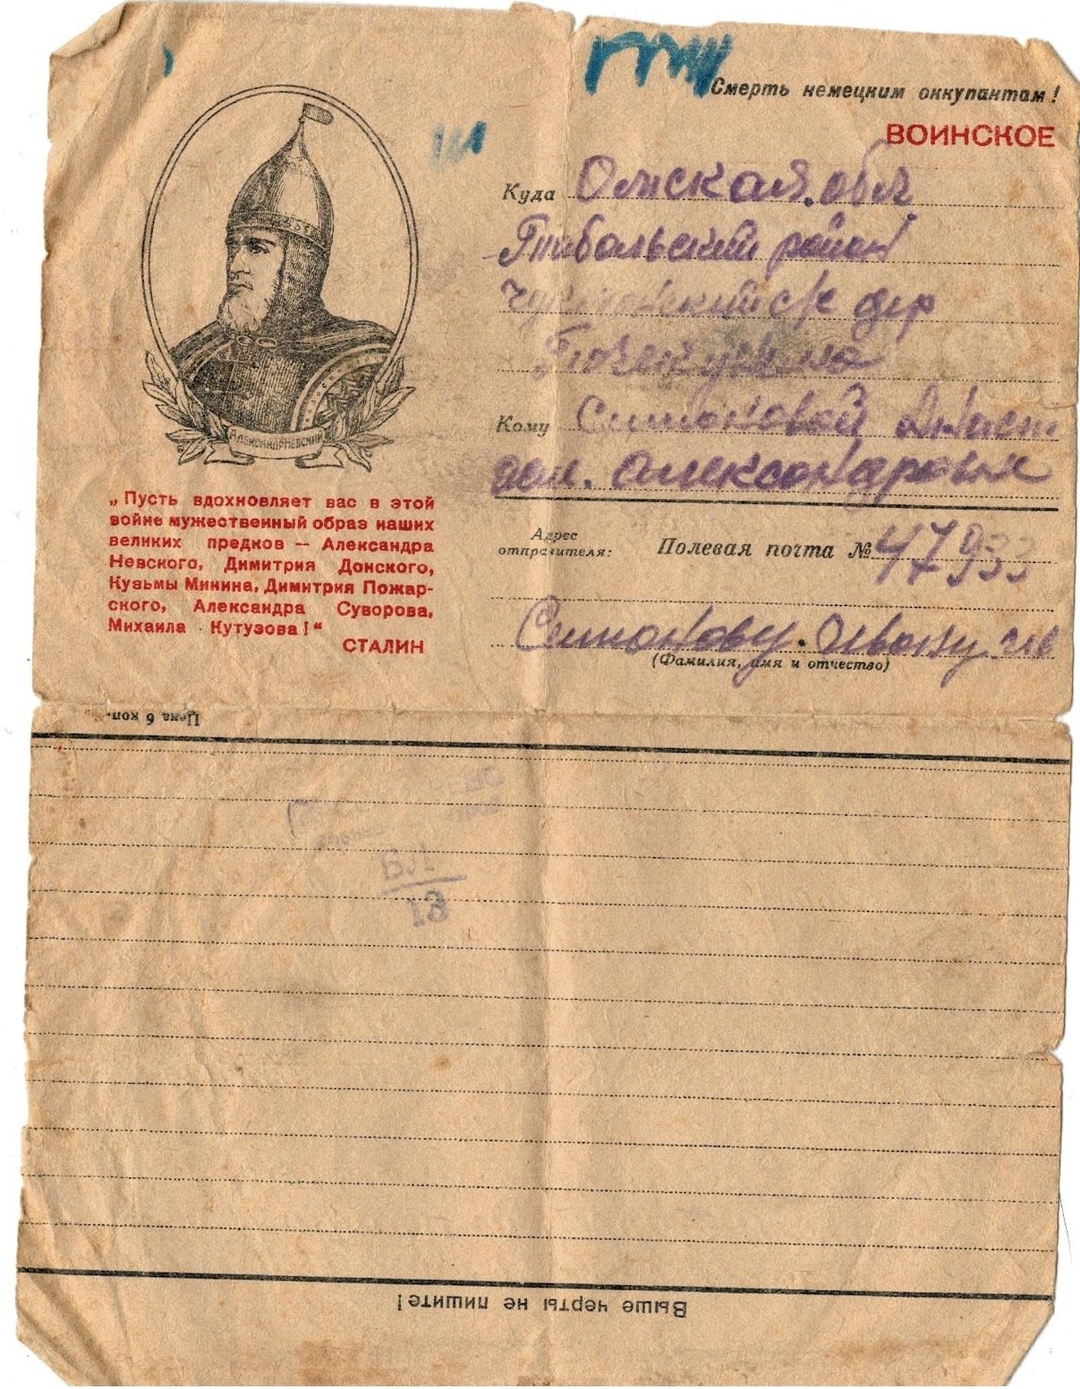 Смерть немецким оккупантам!
ВОИНСКОЕ
Куда Омская обл
Тобольский район
дер
Кому Симоновой
Александровне
Адрес отправителя: Полевая почта № 47933
Симонову. Ивану Ив
(Фамилия, имя и отчество)
АЛЕКСАНДР НЕВСКИЙ
„Пусть вдохновляет вас в этой
войне мужественный образ наших
великих предков — Александра
Невского, Димитрия Донского,
Кузьмы Минина, Димитрия Пожар-
ского, Александра Суворова,
Михаила Кутузова!“
СТАЛИН
Цена 6 коп.
БЛ
13
Выше черты не пишите!